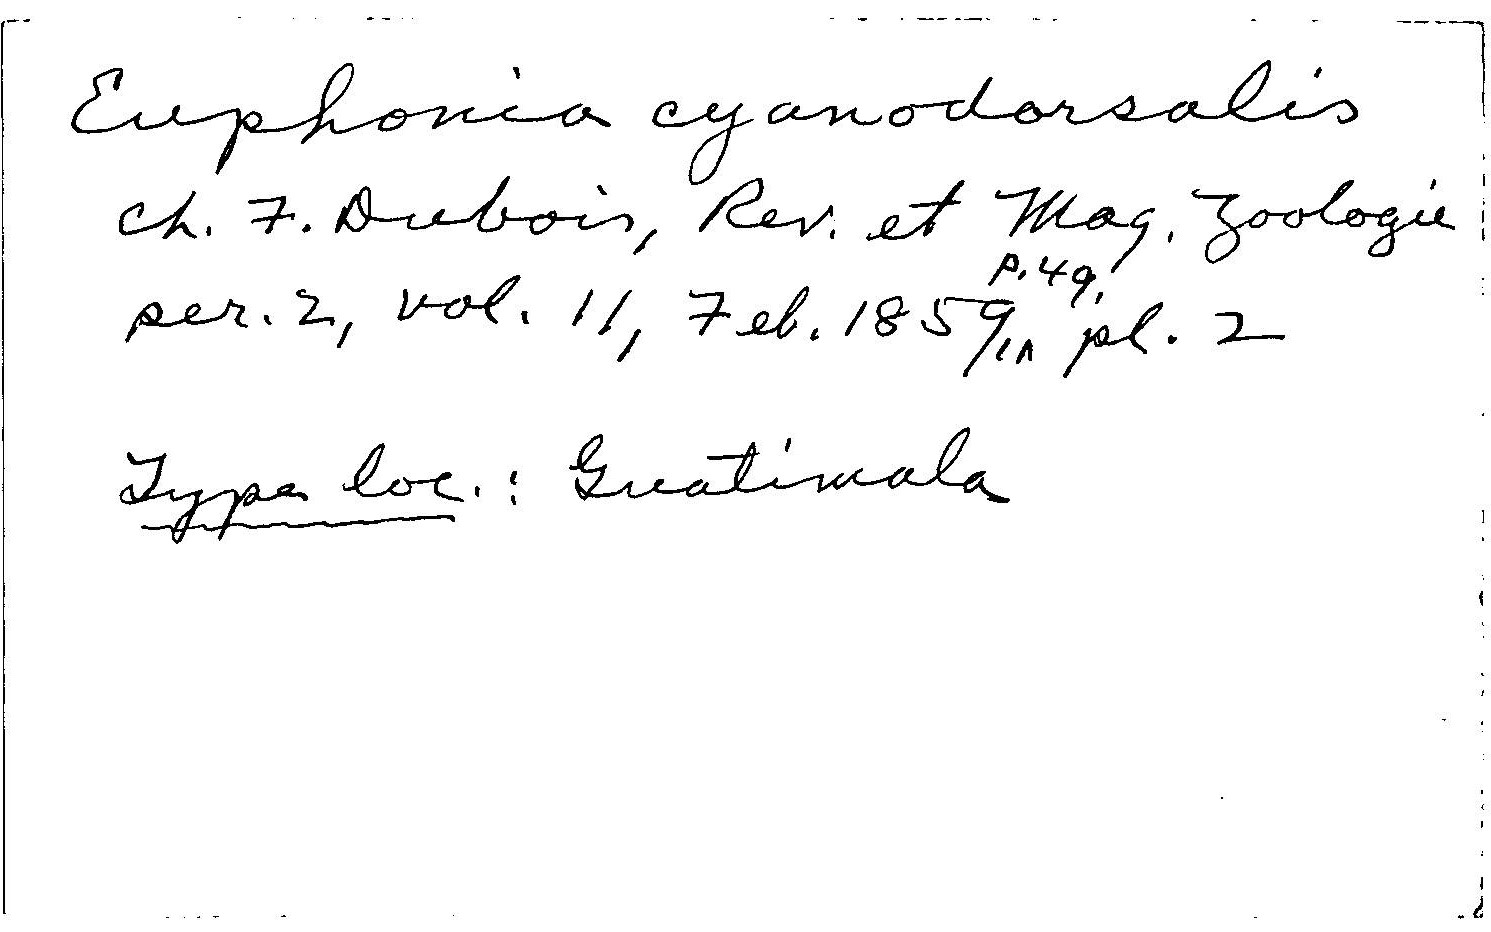 Euphonia cyanodorsalis
Ch. F. Dubois, Rev. et Mag. Zoologie
ser. 2, vol. 11, Feb. 1859, p. 49, pl. 2
Type loc.: Guatimala